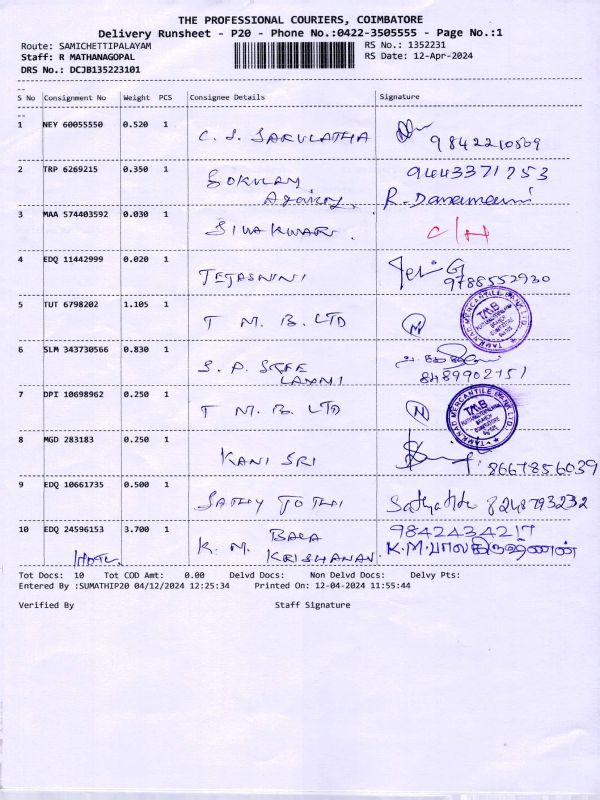 THE PROFESSIONAL COURIERS, COIMBATORE
Delivery Runsheet - P20 - Phone No.:0422-3505555 - Page No.:1
Route: SAMICHETTIPALAYAM
RS No.: 1352231
Staff: R MATHANAGOPAL
RS Date: 12-Apr-2024
DRS No.: DCJB135223101
S No Consignment No Weight PCS Consignee Details Signature
1 NEY 60055550 0.520 1 C. S. SARULATHA 9842210569
2 TRP 6269215 0.350 1 GOKULAM 9443371753
3 MAA 574403592 0.030 1 SIVAKUMAR. C/H
4 EDQ 11442999 0.020 1 TEJASWINI 9788552930
5 TUT 6798202 1.105 1 T M. B. LTD
TAMILNAD MERCANTILE BANK LTD.
TMB
BRANCH
COIMBATORE
6 SLM 343730566 0.830 1 S. P. SREE
LAXMI 8489902151
7 DPI 10698962 0.250 1 T M. B. LTD
TAMILNAD MERCANTILE BANK LTD.
TMB
BRANCH
COIMBATORE
8 MGD 283183 0.250 1 KANI SRI 8667856039
9 EDQ 10661735 0.500 1 SATHY JOTHI 8248793232
10 EDQ 24596153 3.700 1 K. M. BALA 9842434217
KRISHANAN. K.M.பாலகிருஷ்ணன்
Tot Docs: 10 Tot COD Amt: 0.00 Delvd Docs: Non Delvd Docs: Delvy Pts:
Entered By :SUMATHIP20 04/12/2024 12:25:34 Printed On: 12-04-2024 11:55:44
Verified By Staff Signature